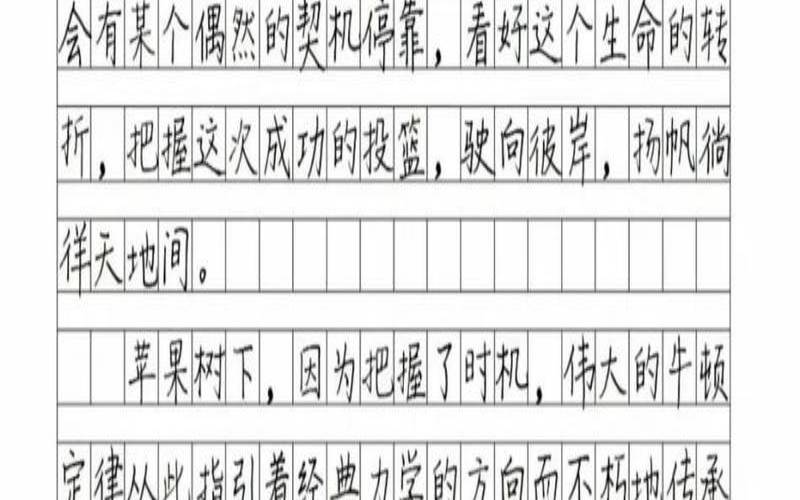 会有某个偶然的契机停靠，看好这个生命的转
折，把握这次成功的投篮，驶向彼岸，扬帆徜
徉天地间。
苹果树下，因为把握了时机，伟大的牛顿
定律从此指引着经典力学的方向而不朽地传承